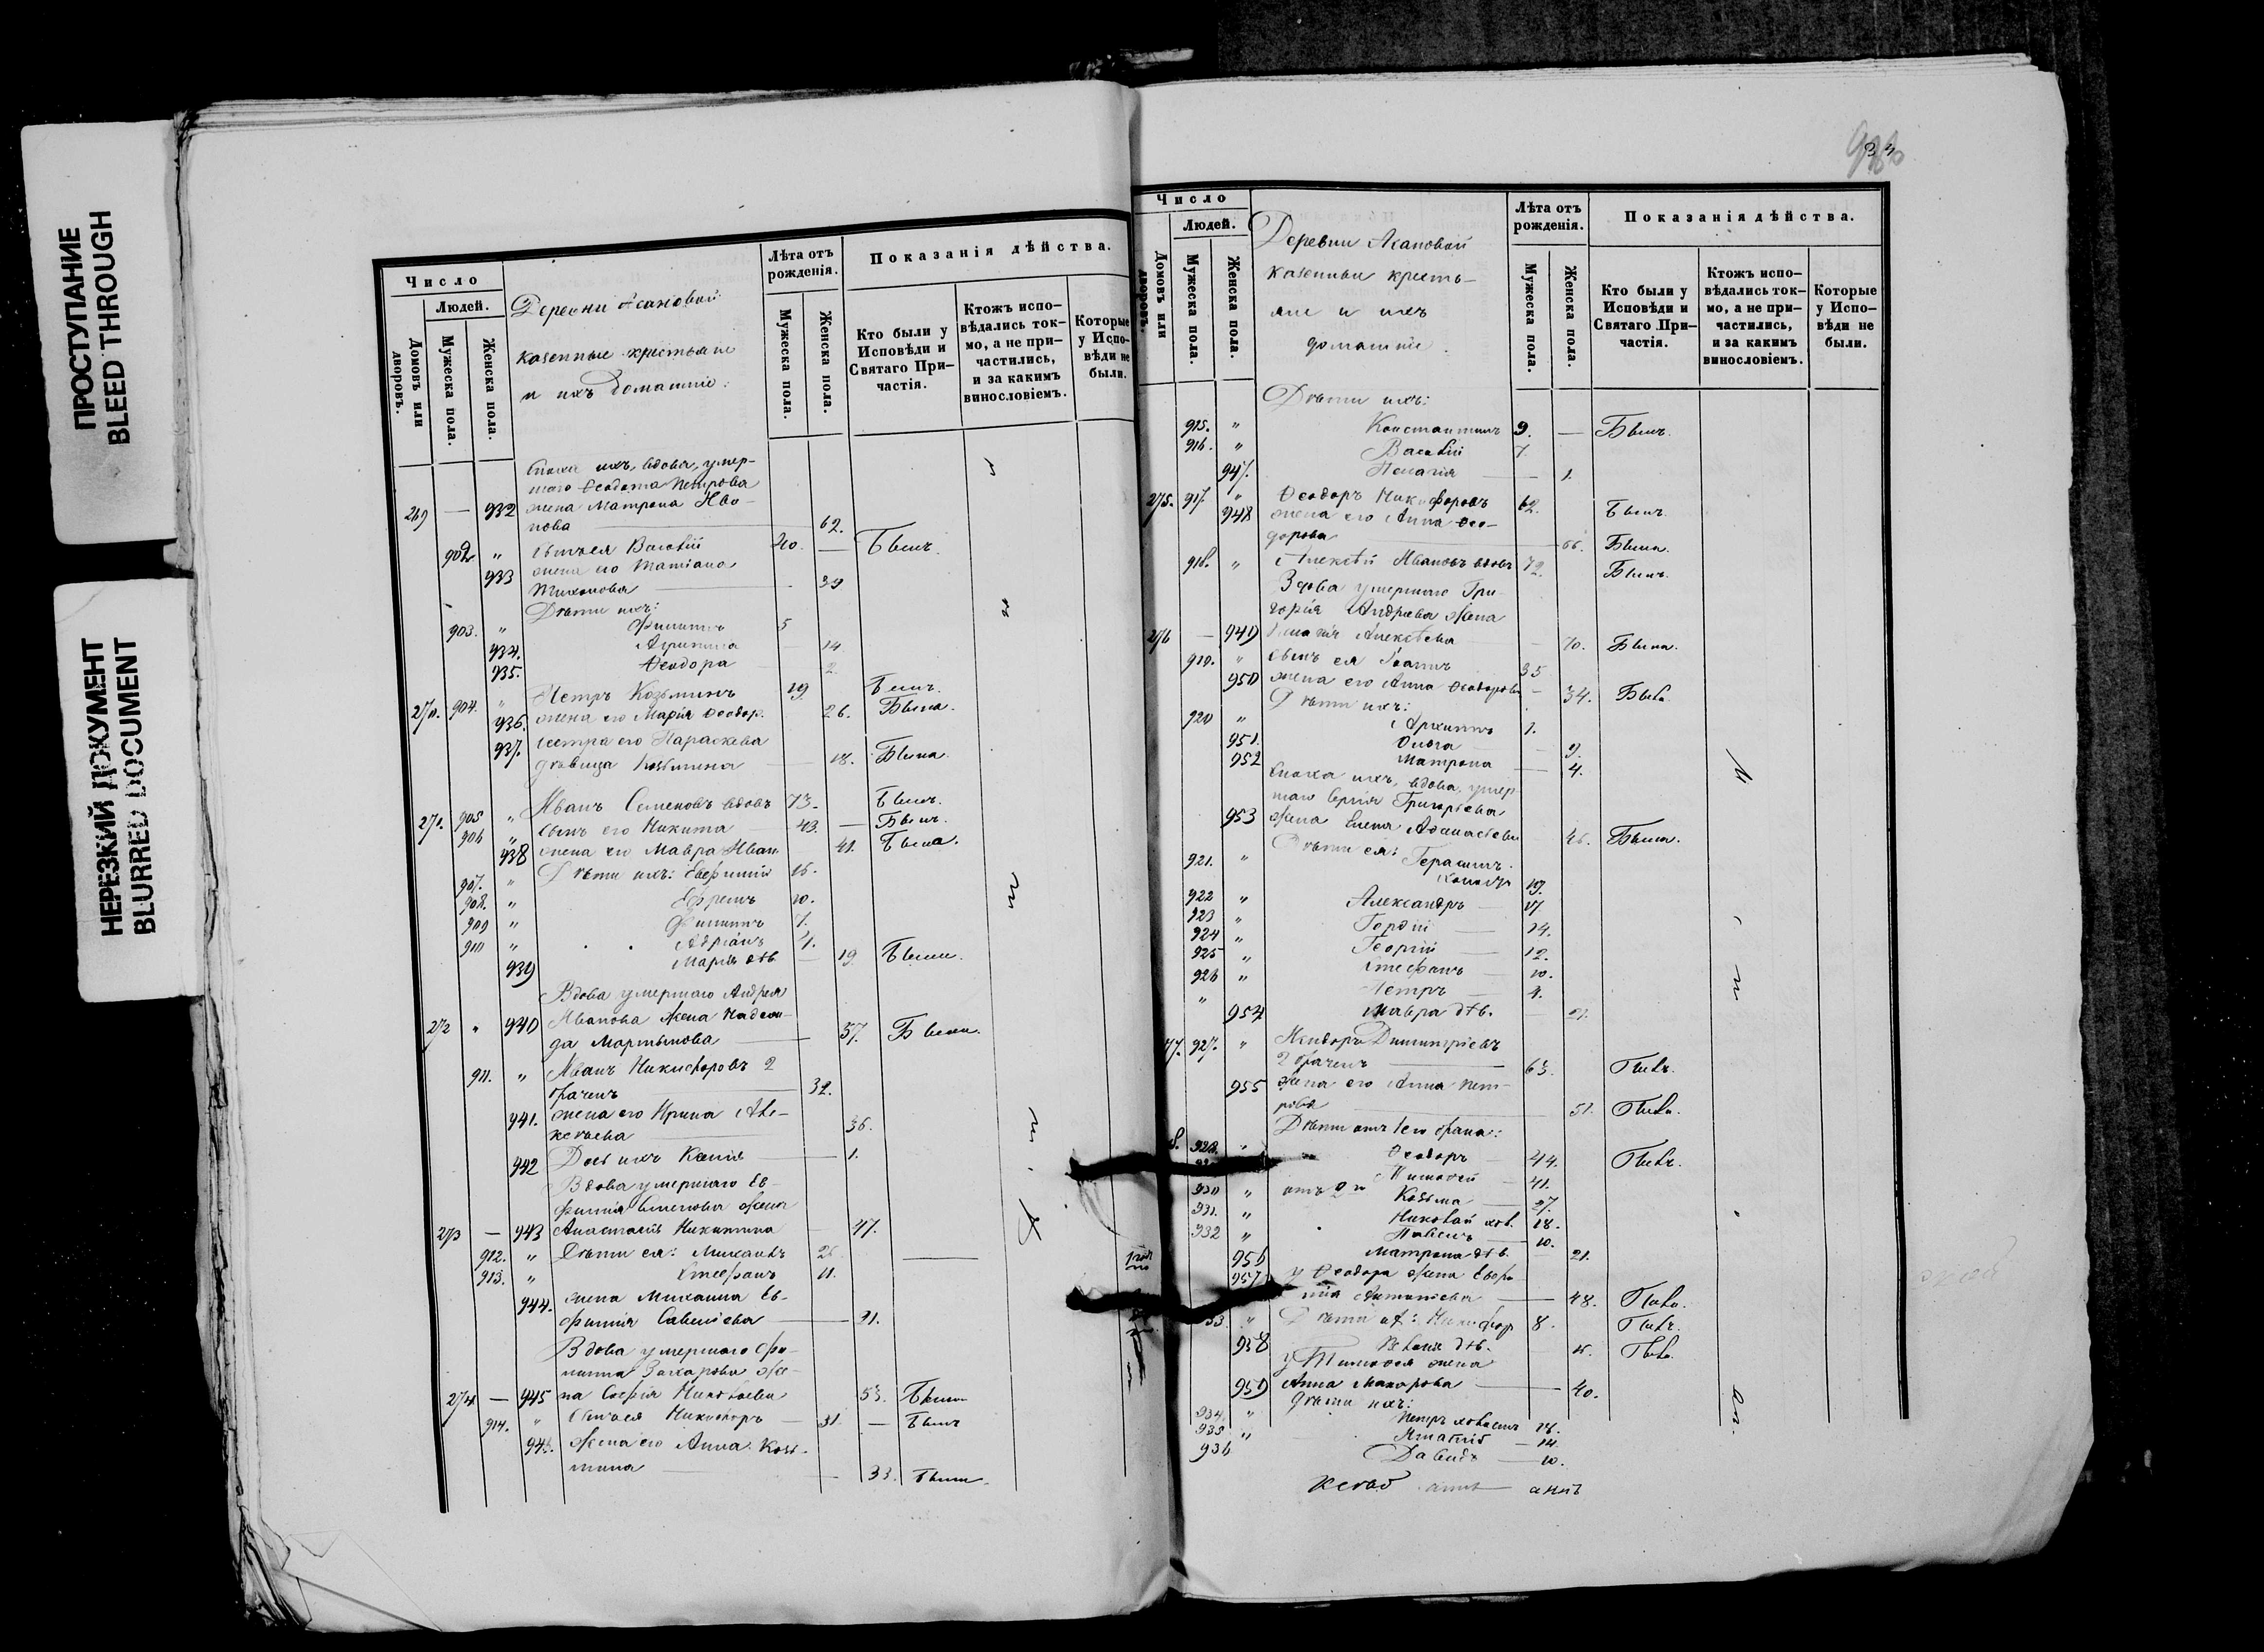 ПРОСТУПАНИЕ
BLEED THROUGH
НЕРЕЗКИЙ ДОКУМЕНТ
BLURRED DOCUMENT
Число
Людей.
Домовъ или дворовъ.
Мужеска пола.
Женска пола.
Деревни Асановой
казенные крестьяне
и ихъ домашніе:
Лѣта отъ рожденія.
Мужеска пола.
Женска пола.
Показанія дѣйства.
Кто были у Исповѣди и Святаго Причастія.
Ктожъ исповѣдались токмо, а не причастились, и за какимъ винословіемъ.
Которые у Исповѣди не были.
Сноха ихъ, вдова, умер-
шаго Ѳеодота Петрова
269 — 932 жена Матрона Ива-
нова — 62.
902 " сынъ ея Василій 40. — Былъ.
933 жена его Татіана
Тихонова — 39
Дѣти ихъ:
903. " Филиппъ 5
934. Агрипина — 14
935. Ѳеодора — 2.
270. 904. " Петръ Козьминъ 29 Былъ.
936. жена его Марія Ѳеодор. 26. Была.
937. сестра его Параскева
дѣвица Козьмина — 18. Была.
271. 905 " Иванъ Семеновъ вдовъ 73. Былъ.
906 " сынъ его Никита — 43. — Былъ.
938 жена его Мавра Иван. 41. Была.
907. " Дѣти ихъ: Евѳимій 16.
908. " Ефремъ 10.
909 " Филиппъ 7.
910 " Адріанъ 4.
939 Марія дѣв. — 19 Была.
Вдова умершаго Андрея
272 " 940 Иванова жена Надеж-
да Мартынова — 57. Была.
911. " Иванъ Никифоровъ 2
браченъ — 32.
941. жена его Ирина Але-
ксѣева — 36.
942 Дочь ихъ Ксенія — 1.
Вдова умершаго Ев-
фимія Семенова жена
273 — 943 Анастасія Никитина — 47.
912. " Дѣти ея: Михаилъ 26
913. " Стефанъ 11.
944. жена Михаила Ев-
фимія Савельева — 21.
Вдова умершаго Фи-
липпа Захарова же-
274 — 945 на Софія Николаева 53. Была
914. " Сынъ ея Никифоръ — 31. — Былъ
946. жена его Анна Козь-
мина — 33. Была.
Число
Людей.
Домовъ или дворовъ.
Мужеска пола.
Женска пола.
Деревни Асановой
казенные кресть-
яне и ихъ
домашніе.
Лѣта отъ рожденія.
Мужеска пола.
Женска пола.
Показанія дѣйства.
Кто были у Исповѣди и Святаго Причастія.
Ктожъ исповѣдались токмо, а не причастились, и за какимъ винословіемъ.
Которые у Исповѣди не были.
Дѣти ихъ:
915. " Константинъ 9. — Былъ.
916. " Василій 7.
947. Пелагія — 1.
275. 917. " Ѳеодоръ Никифоровъ 62. Былъ.
948 жена его Анна Ѳео-
дорова — 66. Была.
918. " Алексѣй Ивановъ вдовъ 72. Былъ.
Вдова умершаго Гри-
горія Андреева жена
276 — 949 Алексѣева — 70. Была.
919. " сынъ ея Іоаннъ 35
950 жена его Анна Ѳеодорова — 34. Была
Дѣти ихъ:
920 " Архиппъ 1.
951. Ольга — 9.
952 Матрона — 4.
Сноха ихъ, вдова, умер-
шаго Сергія Григорьева
953 жена Елена Аѳанасьева — 46. Была.
Дѣти ея:
921. " Герасимъ
холостъ 19.
922 " Александръ — 17
923 " Гордій — 14.
924 " Георгій — 12.
925 " Стефанъ — 10.
926 " Петръ — 4.
954 Мавра дѣв. — 21.
77. 927. " Исидоръ Димитріевъ
2 браченъ — 63. Былъ.
955 жена его Анна Пет-
рова — 51. Была.
Дѣти отъ 1го брака:
8. 928. " Ѳеодоръ — 44. Былъ.
Тимоѳей — 41.
930 " отъ 2го Козьма — 27.
931. " Николай хол. 18.
932 " Павелъ — 10.
956 Матрона дѣв. — 21.
957 у Ѳеодора жена Евфи-
мія — 48. Была.
33 " Дѣти ихъ: Никифор 8. Былъ.
958 дѣв. — Была.
у Тимоѳея жена
959 Анна Макарова — 40.
Дѣти ихъ:
934. " Петръ холостъ 18.
935 " Игнатій — 14.
936 Давидъ — 10.